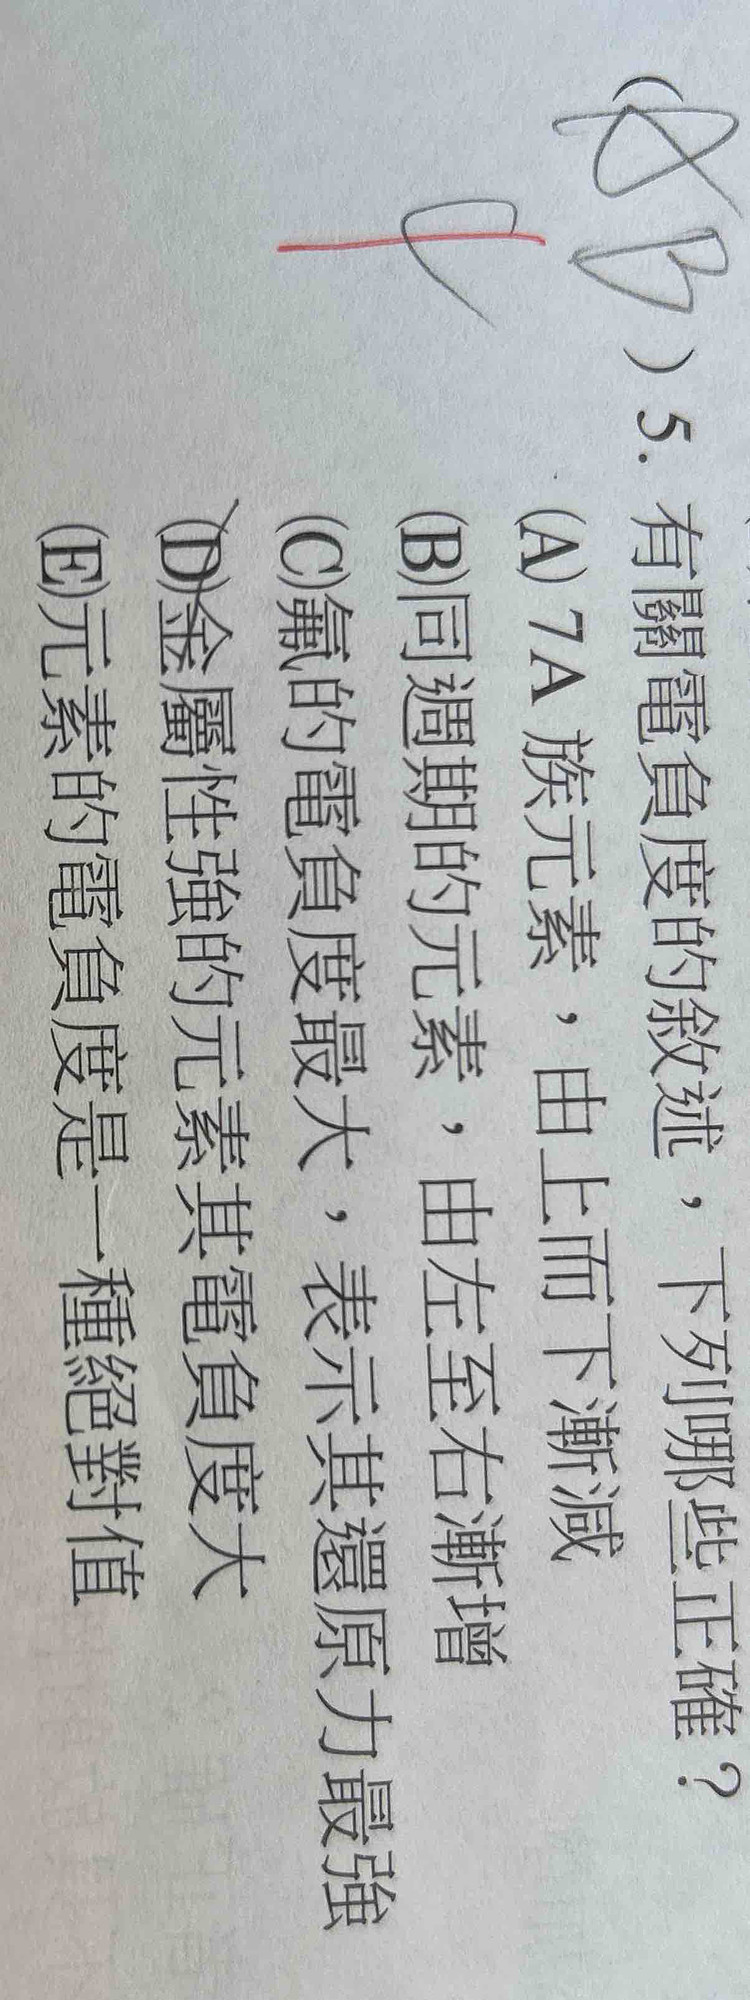 (AB)5. 有關電負度的敘述，下列哪些正確？
C
(A) 7A 族元素，由上而下漸減
(B)同週期的元素，由左至右漸增
(C)氟的電負度最大，表示其還原力最強
(D)金屬性強的元素其電負度大
(E)元素的電負度是一種絕對值